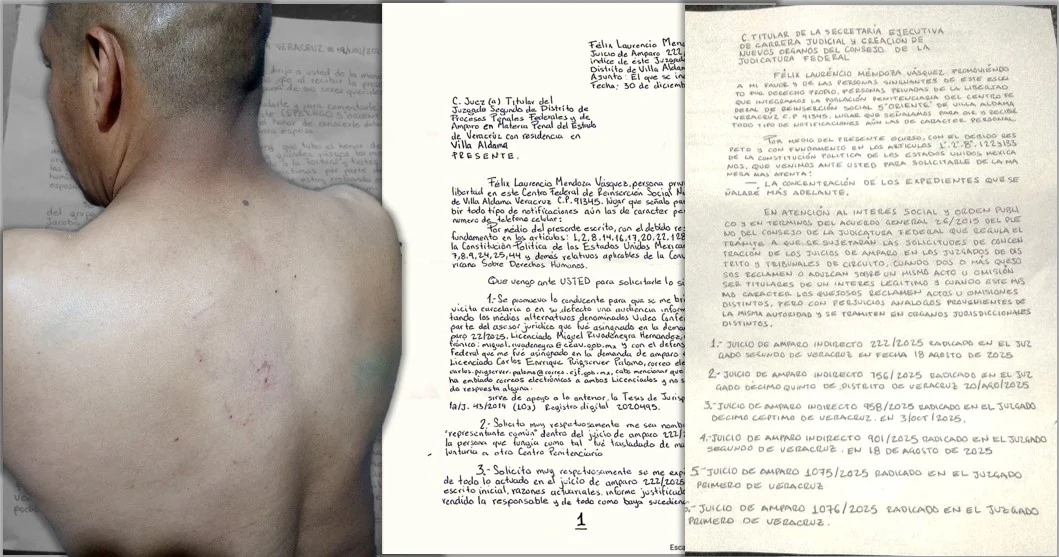 VERACRUZ
Félix Laurencio Men
Juicio de Amparo 222
índice de este Juzgad
Distrito de Villa Aldam
Asunto: El que se in
Fecha: 30 de diciemb
C. Juez (a) Titular del
Juzgado Segundo de Distrito de
Procesos Penales Federales y de
Amparo en Materia Penal del Estado
de Veracruz con residencia en
Villa Aldama
PRESENTE.
Félix Laurencio Mendoza Vásquez, persona priv
libertad en este Centro Federal de Reinserción Social N
de Villa Aldama Veracruz C.P. 91345. lugar que señalo pa
bir todo tipo de notificaciones aún las de caracter pe
número de telefono celular:
Por medio del presente escrito, con el debido res
fundamento en los artículos: 1,2,8,14,16,17,20,22,128
la Constitución Política de los Estados Unidos Mexican
7,8,9,24,25,44 y demás relativos aplicables de la Conv
ricana Sobre Derechos Humanos.
Que vengo ante USTED para solicitarle lo si
1.- Se promueva lo conducente para que se me bri
vicita carcelaria o en su defecto una audiencia inform
tando los médios alternativos denominados Video Confe
parte del asesor jurídico que fue asignando en la dema
paro 22/2025. Licenciado Miguel Rivadenegra Hernandez,
trónico: miguel.rivadenegra@ceav.gob.mx y con el defens
Federal que me fue asignado en la demanda de amparo
Licenciado Carlos Enrrique Puigserver Palomo, correo ele
carlos.puigserver.palomo@correo.cjf.gob.mx, cabe mencionar que
ha enviado correos electrónicos a ambos Licenciados y no s
do respuesta alguna.
sirve de apoyo a lo anterior, la Tesis de Jurisp
1a/J. 43/2019 (10a) Registro digital 2020495.
2.- Solicito muy respetuosamente me sea nomb
"representante común" dentro del juicio de amparo 222/2
la persona que fungía como tal fue trasladado de ma
luntaria a otro Centro Penitenciario
3.- Solicito muy respetuosamente se me exp
de todo lo actuado en el juicio de amparo 222/2025
escrito inicial, razones actuariales, informe justificado
rendido la responsable y de todo como haya sucedien
1
Esca
C. TITULAR DE LA SECRETARÍA EJECUTIVA
DE CARRERA JUDICIAL Y CREACIÓN DE
NUEVOS ORGANOS DEL CONSEJO DE LA
JUDICATURA FEDERAL
FÉLIX LAURENCIO MENDOZA VÁSQUEZ, PROMOVIENDO
A MI FAVOR Y DE LAS PERSONAS SIGNANTES DE ESTE ESCRI
TO POR DERECHO PROPIO, PERSONAS PRIVADAS DE LA LIBERTAD
QUE INTEGRAMOS LA POBLACIÓN PENITENCIARIA DEL CENTRO FE
DERAL DE REINSERCIÓN SOCIAL 5 "ORIENTE" DE VILLA ALDAMA
VERACRUZ C.P 91345. LUGAR QUE SEÑALAMOS PARA OIR Y RECIBIR
TODO TIPO DE NOTIFICACIONES AÚN LAS DE CARACTER PERSONAL.
POR MEDIO DEL PRESENTE OCURSO, CON EL DEBIDO RES
PETO Y CON FUNDAMENTO EN LOS ARTÍCULOS 1°.2°.8°.122y133
DE LA CONSTITUCIÓN POLÍTICA DE LOS ESTADOS UNIDOS MEXICA
NOS, QUE VENIMOS ANTE USTED PARA SOLICITARLE DE LA MA
NERA MAS ATENTA:
— LA CONCENTRACIÓN DE LOS EXPEDIENTES QUE SE
ÑALARÉ MÁS ADELANTE.
EN ATENCIÓN AL INTERÉS SOCIAL Y ORDEN PUBLI
CO Y EN TERMINOS DEL ACUERDO GENERAL 26/2015 DEL PLE
NO DEL CONSEJO DE LA JUDICATURA FEDERAL QUE REGULA EL
TRÁMITE A QUE SE SUJETARAN LAS SOLICITUDES DE CONCEN
TRACIÓN DE LOS JUICIOS DE AMPARO EN LOS JUZGADOS DE DIS
TRITO Y TRIBUNALES DE CIRCUITO, CUANDO DOS O MAS QUEJO
SOS RECLAMEN O ADUZCAN SOBRE UN MISMO ACTO U OMISIÓN
SER TITULARES DE UN INTERES LEGÍTIMO Y CUANDO ESTE MIS
MO CARACTER LOS QUEJOSOS RECLAMEN ACTOS U OMISIONES
DISTINTOS, PERO CON PERJUICIOS ANALOGOS PROVENIENTES DE
LA MISMA AUTORIDAD Y SE TRAMITEN EN ORGANOS JURISDICCIONALES
DISTINTOS.
1.- JUICIO DE AMPARO INDIRECTO 222/2025 RADICADO EN EL JUZ
GADO SEGUNDO DE VERACRUZ EN FECHA 18 AGOSTO DE 2025
2.- JUICIO DE AMPARO INDIRECTO 756/2025 RADICADO EN EL JUZ
GADO DÉCIMO QUINTO DE DISTRITO DE VERACRUZ 20/AGO/2025
3.- JUICIO DE AMPARO INDIRECTO 958/2025 RADICADO EN EL JUZGADO
DECIMO CEPTIMO DE VERACRUZ. EN 3/OCT/2025.
4.- JUICIO DE AMPARO INDIRECTO 901/2025 RADICADO EN EL JUZGADO
SEGUNDO DE VERACRUZ. EN 18 DE AGOSTO DE 2025
5.- JUICIO DE AMPARO 1075/2025 RADICADO EN EL JUZGADO
PRIMERO DE VERACRUZ
6.- JUICIO DE AMPARO 1076/2025 RADICADO EN EL JUZGADO
PRIMERO DE VERACRUZ.